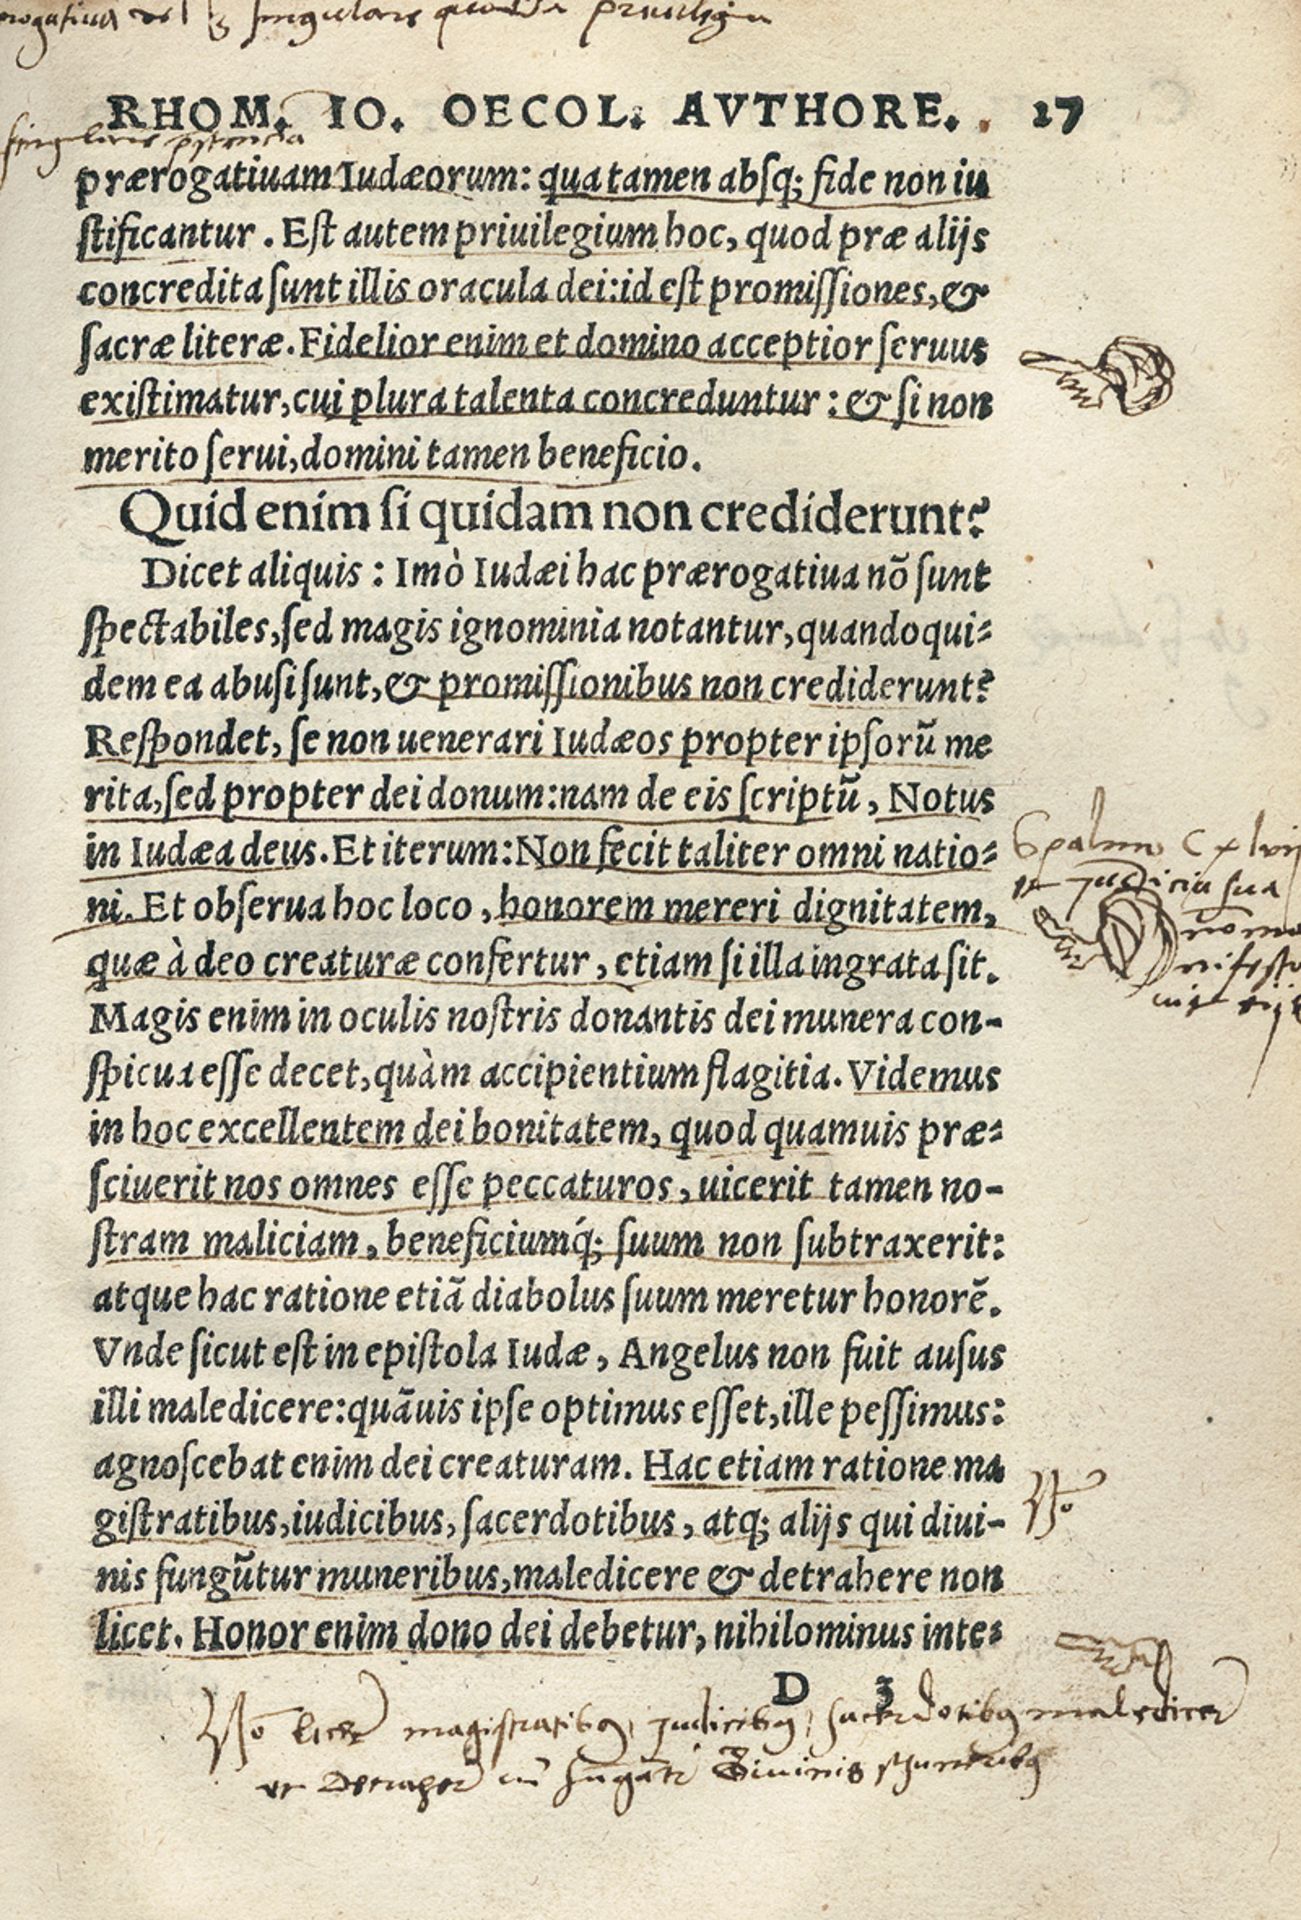 singularis quædã priuilegia
RHOM. IO. OECOL. AVTHORE. 27
singularis
prærogatiuam Iudæorum: qua tamen absq; fide non iu
stificantur. Est autem priuilegium hoc, quod præ alijs
concredita sunt illis oracula dei: id est promissiones, &
sacræ literæ. Fidelior enim et domino acceptior seruus
existimatur, cui plura talenta concreduntur: & si non
merito serui, domini tamen beneficio.
Quid enim si quidam non crediderunt?
Dicet aliquis: Imò Iudæi hac prærogatiua nõ sunt
spectabiles, sed magis ignominia notantur, quandoqui-
dem ea abusi sunt, & promissionibus non crediderunt?
Respondet, se non uenerari Iudæos propter ipsorũ me
rita, sed propter dei donum: nam de eis scriptũ, Notus
in Iudæa deus. Et iterum: Non fecit taliter omni natio-
ni. Et obserua hoc loco, honorem mereri dignitatem,
quæ à deo creaturæ confertur, etiam si illa ingrata sit.
Magis enim in oculis nostris donantis dei munera con-
spicua esse decet, quàm accipientium flagitia. Videmus
in hoc excellentem dei bonitatem, quod quamuis præ-
sciuerit nos omnes esse peccaturos, uicerit tamen no-
stram maliciam, beneficiumq́; suum non subtraxerit:
atque hac ratione etiã diabolus suum meretur honorẽ.
Vnde sicut est in epistola Iudæ, Angelus non fuit ausus
illi maledicere: quãuis ipse optimus esset, ille pessimus:
agnoscebat enim dei creaturam. Hac etiam ratione ma
gistratibus, iudicibus, sacerdotibus, atq; alijs qui diui-
nis fungũtur muneribus, maledicere & detrahere non
licet. Honor enim dono dei debetur, nihilominus inte-
D 3
psalmo Cxlvij
et judicia sua
nõ ma
nifesta
uit eijs
No
Nõ licet magistratibus, judicibus, sacerdotibus maledicere
et detrahere Diuinis muneribus